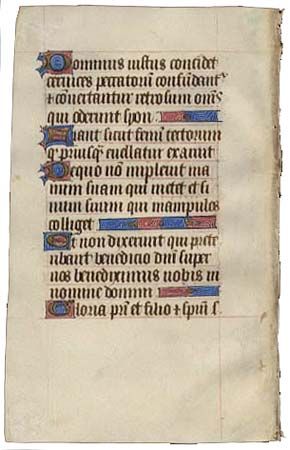 Dominus iustus concidet
ceruices peccatorū confundantr
⁊ cōuertantur retrorsum om̄s
qui oderunt syon
Fiant sicut fenū tectorum
q̄ priusq̄ euellatur exaruit
De quo nō impleuit ma
num suam qui metet et si
num suum qui manipulos
colliget
Et non dixerunt qui prete
ribant benedicio dn̄i super
uos benediximus uobis in
nomine domini
Gloria pr̄i et filio ⁊ spūi s̄